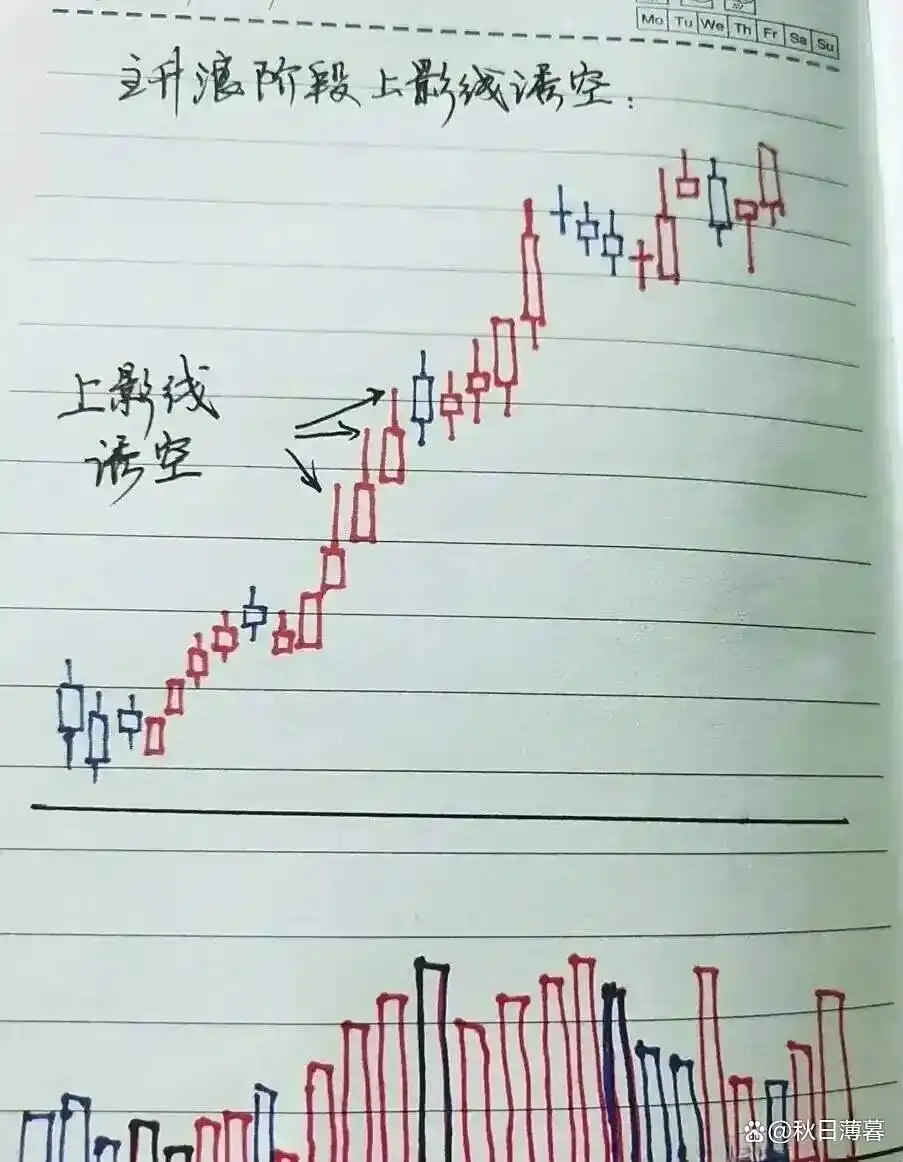 Mo Tu We Th Fr Sa Su
主升浪阶段上影线诱空:
上影线
诱空
@秋日薄暮